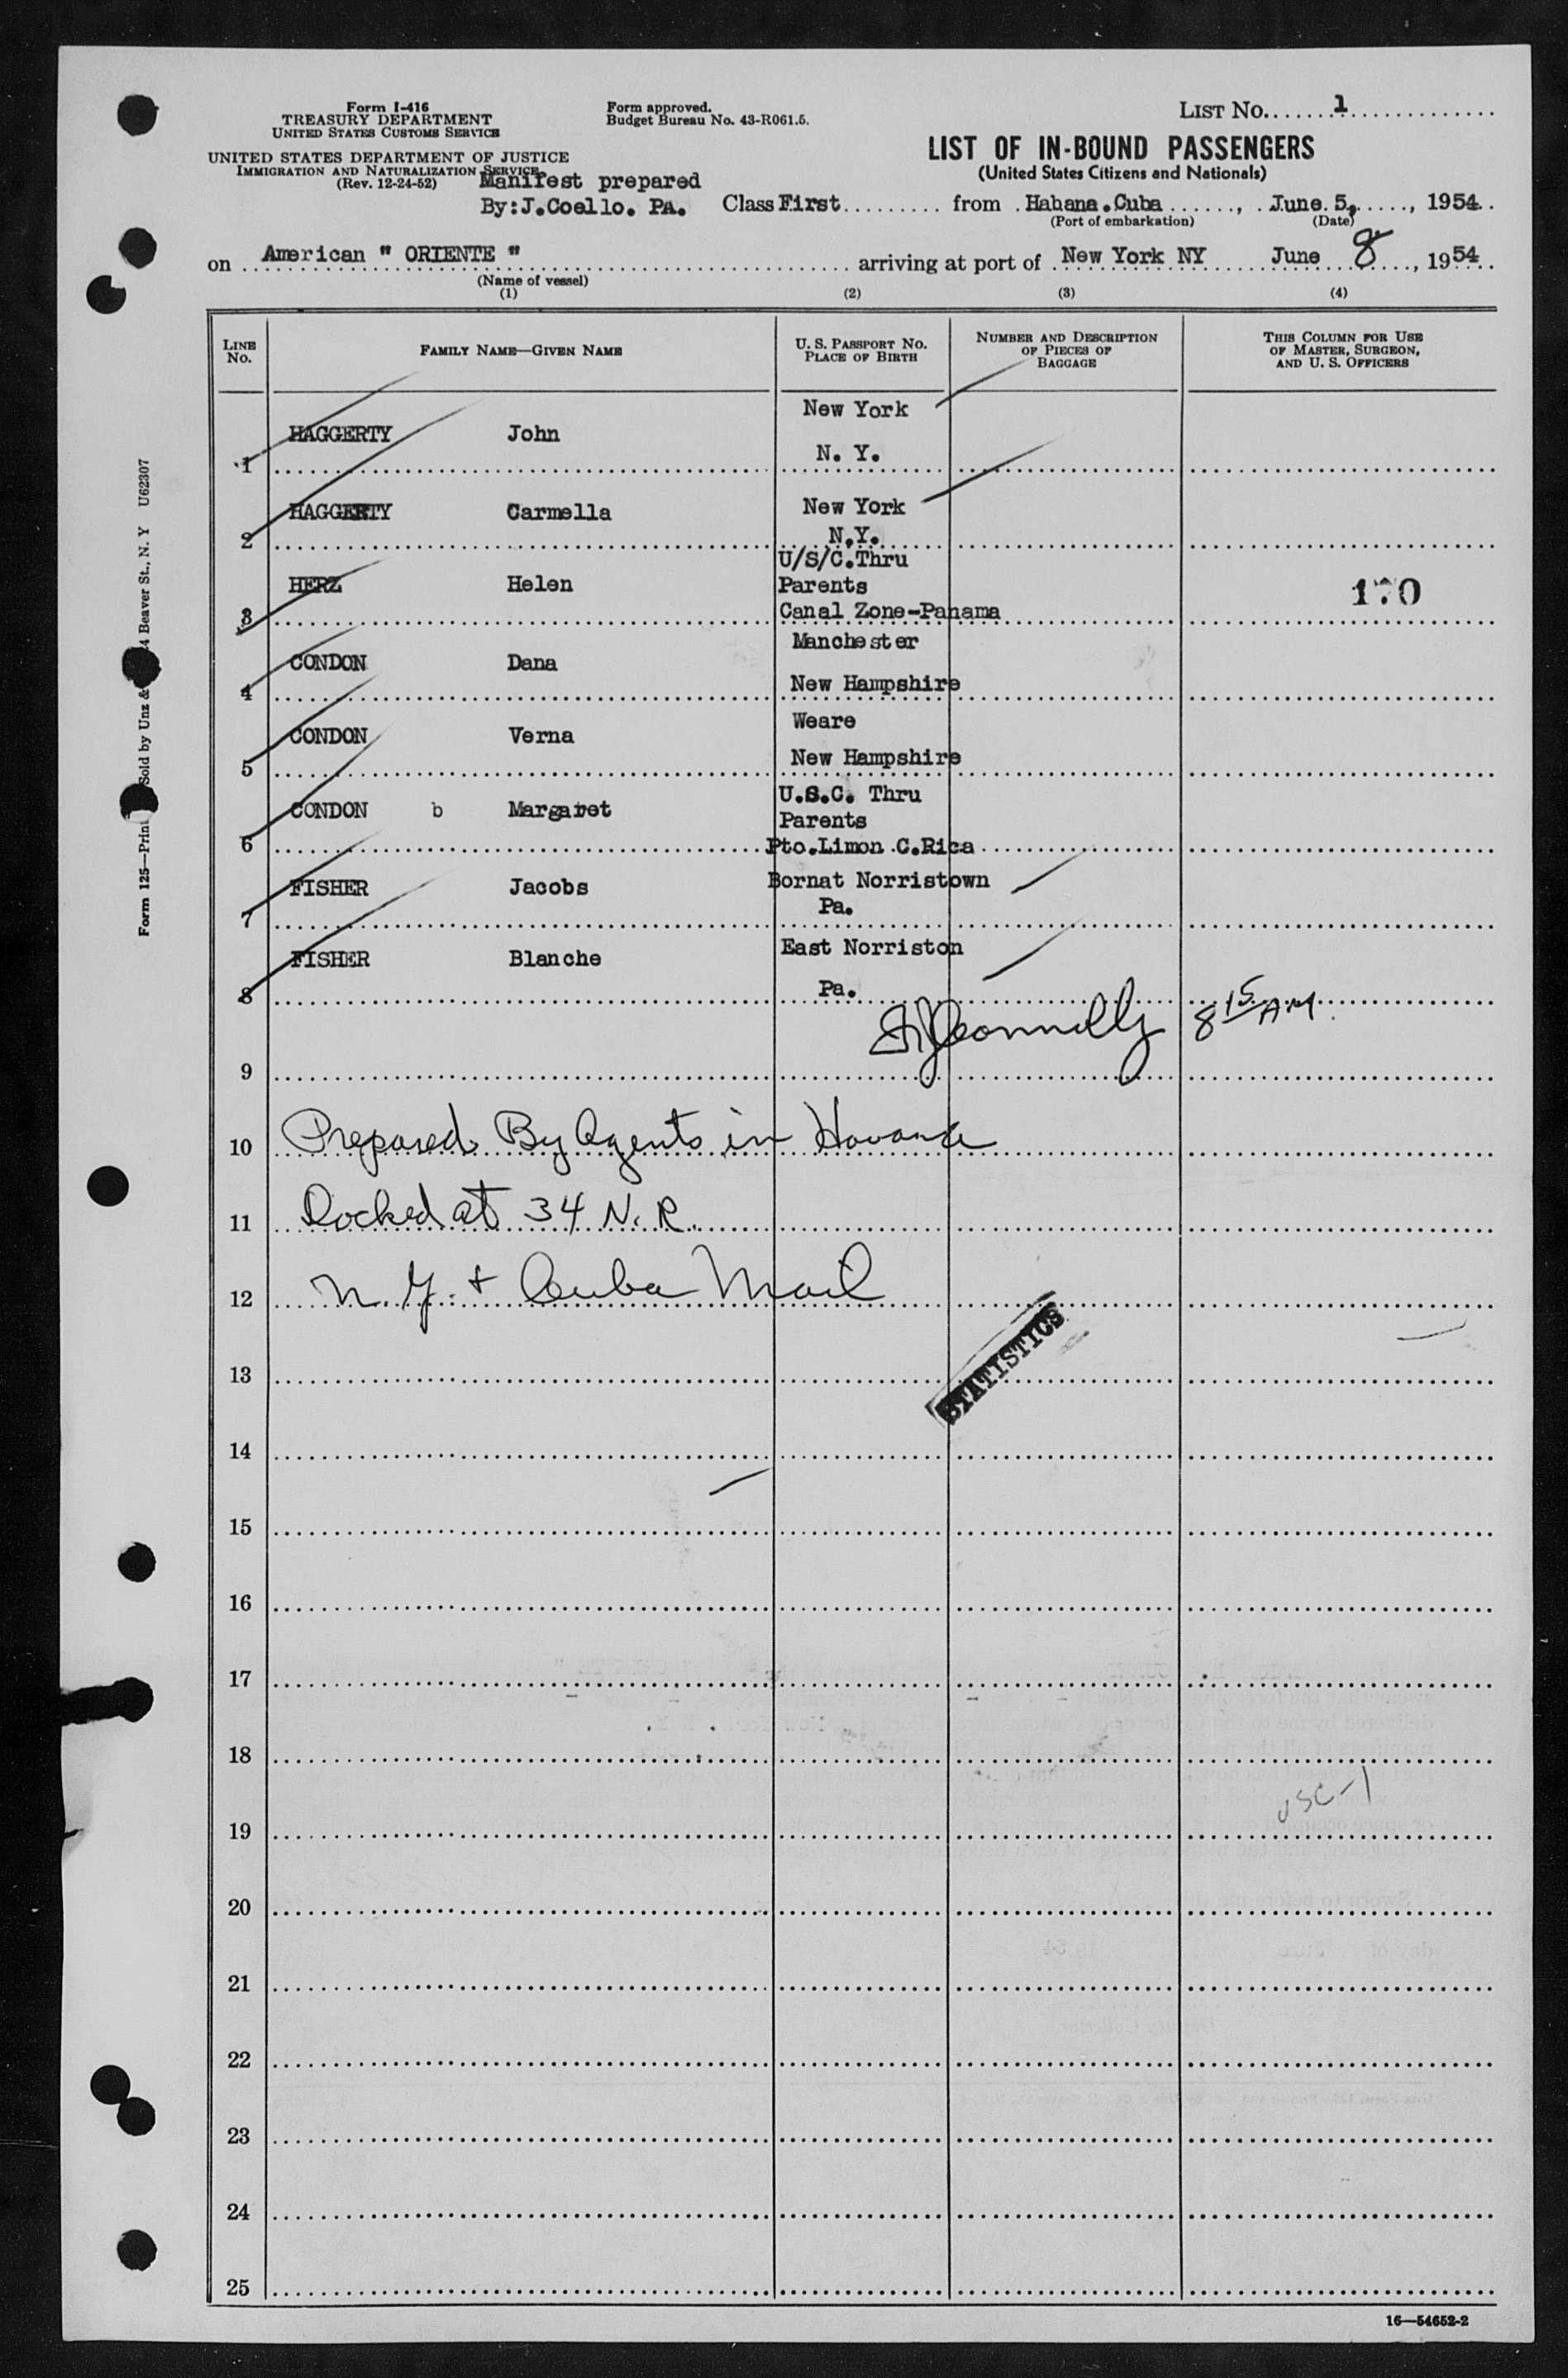 Form I-416
TREASURY DEPARTMENT
UNITED STATES CUSTOMS SERVICE
UNITED STATES DEPARTMENT OF JUSTICE
IMMIGRATION AND NATURALIZATION SERVICE
(Rev. 12-24-52)
Form approved.
Budget Bureau No. 43-R061.5.
LIST No. 1
LIST OF IN-BOUND PASSENGERS
(United States Citizens and Nationals)
Manifest prepared
By:J.Coello. PA. Class First from Habana.Cuba, June 5, 1954
(Port of embarkation) (Date)
on American " ORIENTE " arriving at port of New York NY June 8, 1954
(Name of vessel)
(1) (2) (3) (4)
LINE NO. FAMILY NAME—GIVEN NAME U. S. PASSPORT NO. PLACE OF BIRTH NUMBER AND DESCRIPTION OF PIECES OF BAGGAGE THIS COLUMN FOR USE OF MASTER, SURGEON, AND U. S. OFFICERS
New York
1 HAGGERTY John
N. Y.
2 HAGGERTY Carmella New York
N.Y.
U/S/C.Thru
3 HERZ Helen Parents 170
Canal Zone-Panama
Manchester
4 CONDON Dana
New Hampshire
Weare
5 CONDON Verna
New Hampshire
U.S.C. Thru
6 CONDON b Margaret Parents
Pto.Limon C.Rica
7 FISHER Jacobs Bornat Norristown
Pa.
East Norriston
8 FISHER Blanche
Pa.
Connolly 8 15 AM
9
10 Prepared By Agents in Havana
11 Docked at 34 N. R.
12 N.Y. + Cuba Mail
STATISTICS
13
14
15
16
17
18
USC-1
19
20
21
22
23
24
25
16—54652-2
Form 125—Prin Sold by Unz & 4 Beaver St., N. Y U62307